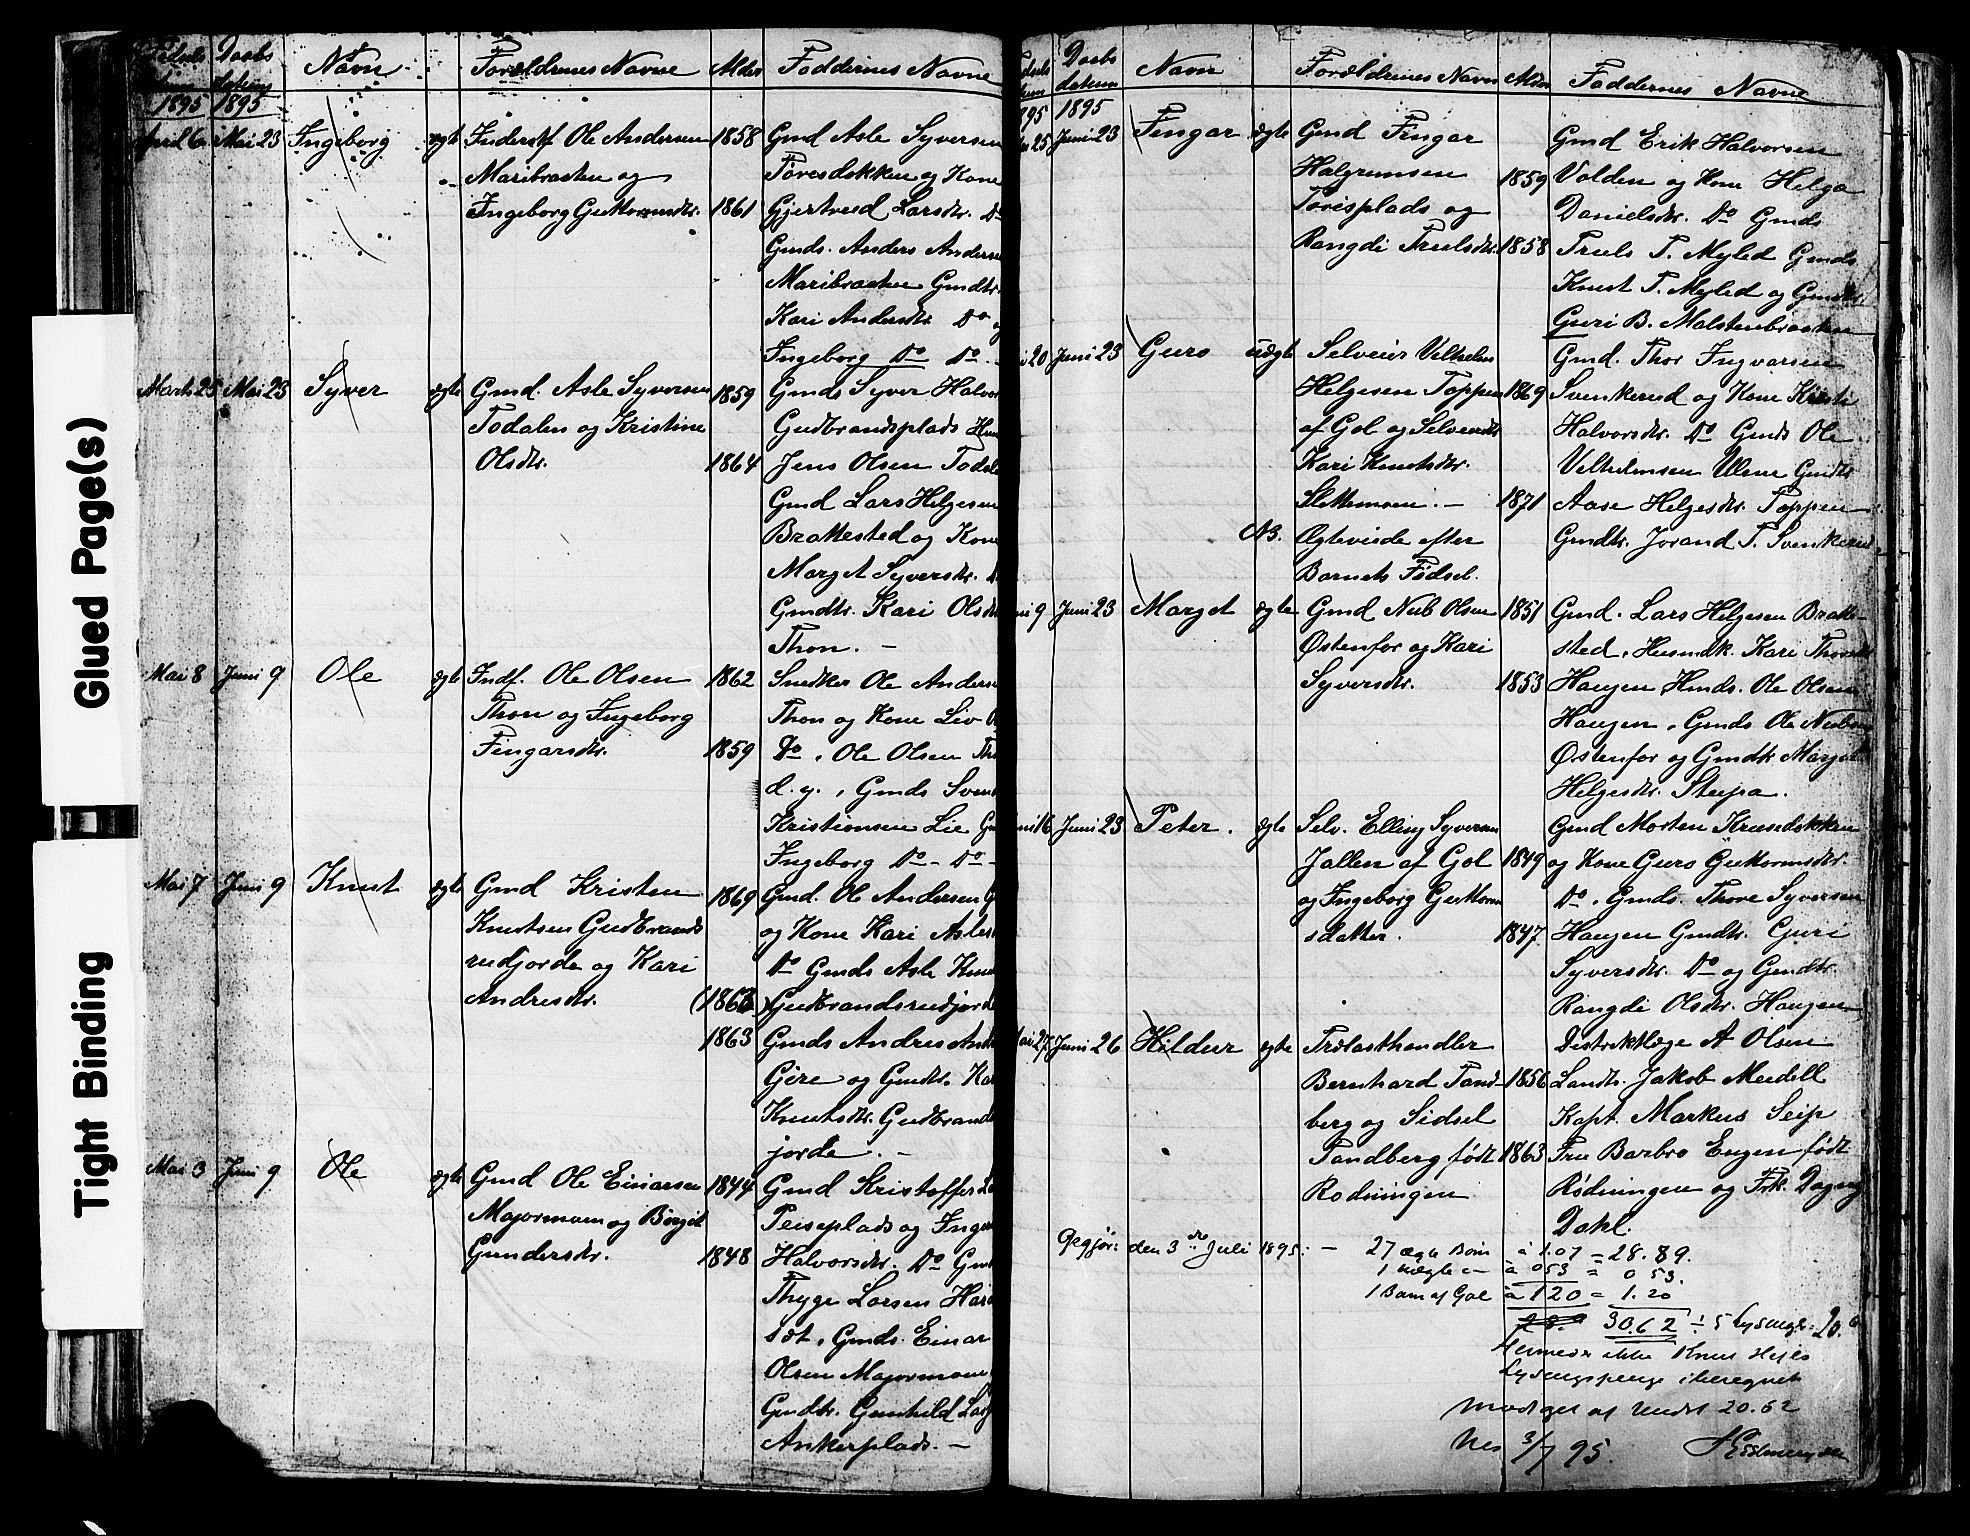 Glued Page(s)
Tight Binding
Daabs Navn Forældrenes Navne Alder Faddernes Navne
datum
1895 1895
April 6 Mai 23 Ingeborg ægte Inderstf Ole Andersen 1858 Gmd Asle Syversen
Maribraaten og Toresdokken og Kone
Ingeborg Guttormsdtr. 1861 Gjertrud Larsdtr. Do
Gmds. Anders Anderse
Maribraaten Gmdtr.
Kari Andersdtr. Do
Ingeborg Do Do. -
Marts 25 Mai 23 Syver ægte Gmd. Asle Syversen 1859 Gmds Syver Halvor
Todalen og Kristine Gudbrandsplads
Olsdtr. 1864 Jens Olsen
Gmd Lars Helgesen
Brattested og Kone
Margit Syversdtr.
Gmdtr. Kari Olsdtr
Thon. -
Mai 8 Juni 9 Ole ægte Indf. Ole Olsen 1862 Snedker Ole Anders
Thon og Ingeborg Thon og Kone Liv
Fingarsdtr. 1859 Do, Ole Olsen
d. y., Gmds Sven
Kristiansen Lie
Ingeborg Do - Do -
Mai 7 Juni 9 Knut ægte Gmd Kristen 1869 Gmd. Ole Andersen
Knutsen Gudbrands og Kone Kari Asles
rudjorde og Kari Do Gmds Asle Knu
Andresdtr. Gudbrandsrudjorde
1863 Gmds Andres
Gjere og Gmdtr.
Knutsdtr. Gudbrands
jorde. -
Mai 3 Juni 9 Ole ægte Gmd Ole Einarsen 1844 Gmd Kristoffer
Majormoen og Birgit Peiseplads og Inge
Gundersdtr. 1848 Halvorsdtr. Do
Thyge Larsen
Gmds. Einar
Olsen Majormoen
Gmdtr. Gunhild
Ankerplads. -
Daabs Navn Forældrenes Navne Alder Faddernes Navne
datum
1895
25 Juni 23 Fingar ægte Gmd Fingar Gmd Erik Halvorsen
Halgrimsen 1859 Volden og Kone Helga
Torisplads og Danielsdtr. Do Gmds
Rangdi Truelsdtr. 1858 Truels T. Myled Gmds
Knut T. Myled og Gmdtr
Guri B. Malstenbraaten
20 Juni 23 Guro uægte Selveier Vilhelm Gmd. Thor Ingvarsen
Helgesen Toppen 1869 Svenkerud og Kone Kirsti
af Gol og Selveiedtr Halvorsdtr. Do Gmds Ole
Kari Knutsdtr. Velhelmsen Ulene Gmdtr
Slettemoen. - 1871 Aase Helgesdtr. Toppen
NB. Ægteviede efter Gmdtr. Jorand T. Svenkerud
Barnets Fødsel.
9 Juni 23 Margit ægte Gmd Nub Olsen 1851 Gmd. Lars Helgesen Bratte-
Østenfor og Kari sted, Husmdk. Kari
Syversdtr. 1853 Haugen Hmds. Ole Olsen
Haugen, Gmds Ole Nubsen
Østenfor og Gmdtr Margit
Helgesdtr. Steepa.
16 Juni 23 Peter. ægte Selv. Elling Syversen Gmd Morten Krusedokken
Jallen af Gol 1849 og Kone Guro Guttormsdtr.
og Ingeborg Guttorm Do, Gmds. Thore Syversen
sdatter. 1847 Haugen Gmdtr. Guri
Syversdtr. Do og Gmdtr.
Rangdi Olsdtr. Haugen
27 Juni 26 Hildur ægte Trælasthandler Distriktlæge A Olsen
Bernhard Tand- 1856 Landh. Jakob Meidell
berg og Sidsel Kapt. Markus Seip
Tandberg født 1863 Fru Barbro Engen født
Rodningen Rødningen og Frk. Dagny
Dahl.
Opgjør: den 3die Juli 1895: - 27 ægte Børn à 1.07 = 28.89.
1 uægte à 053 = 0 53.
1 Barn af Gol à 120 = 1.20
30.62 ÷ 5 Lysninger
ikke Knut
Lysningspenge
Modtaget 20.62
Nes 3/7 95.